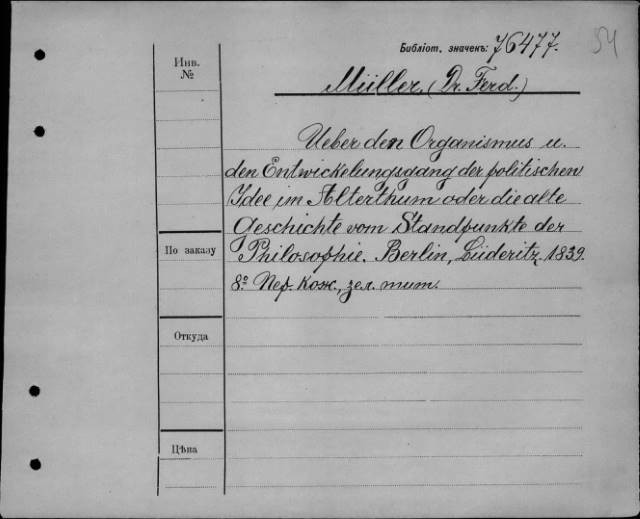 Библіот. значекъ: 76477.
54
Инв.
№
Müller (Dr. Ferd.)
Ueber den Organismus u.
den Entwickelungsgang der politischen
Idee im Alterthum oder die alte
Geschichte vom Standpunkte der
По заказу
Philosophie. Berlin, Lüderitz, 1839.
8º. Пер. кож., зел. тит.
Откуда
Цѣна